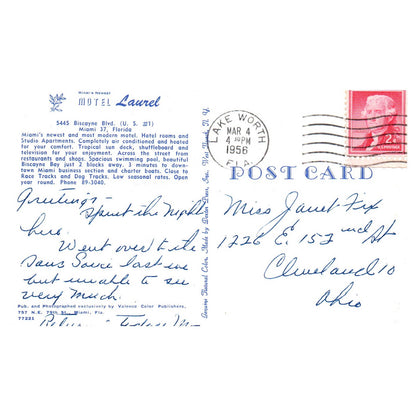 MIAMI'S NEWEST
MOTEL Laurel
5445 Biscayne Blvd. (U. S. #1)
Miami 37, Florida
Miami's newest and most modern motel. Hotel rooms and
Studio Apartments. Completely air conditioned and heated
for your comfort. Tropical sun deck, shuffleboard and
television for your enjoyment. Across the street from
restaurants and shops. Spacious swimming pool, beautiful
Biscayne Bay just 2 blocks away. 3 minutes to down-
town Miami business section and charter boats. Close to
Race Tracks and Dog Tracks. Low seasonal rates. Open
year round. Phone 89-3040.
Greetings
Spent the Night
here.
Went over to the
Sans Souci last eve
but unable to see
very much.
Pub. and Photographed exclusively by Valence Color Publishers,
757 N.E. 79th St. Miami, Fla.
77225
Today
Genuine Natural Color. Made by Dexter Press, Inc. West Nyack, N. Y.
LAKE WORTH
MAR 4
4 PM
1956
FLA.
2¢
POST CARD
Miss Janet Fix
1226 E. 152 nd St
Cleveland 10
Ohio